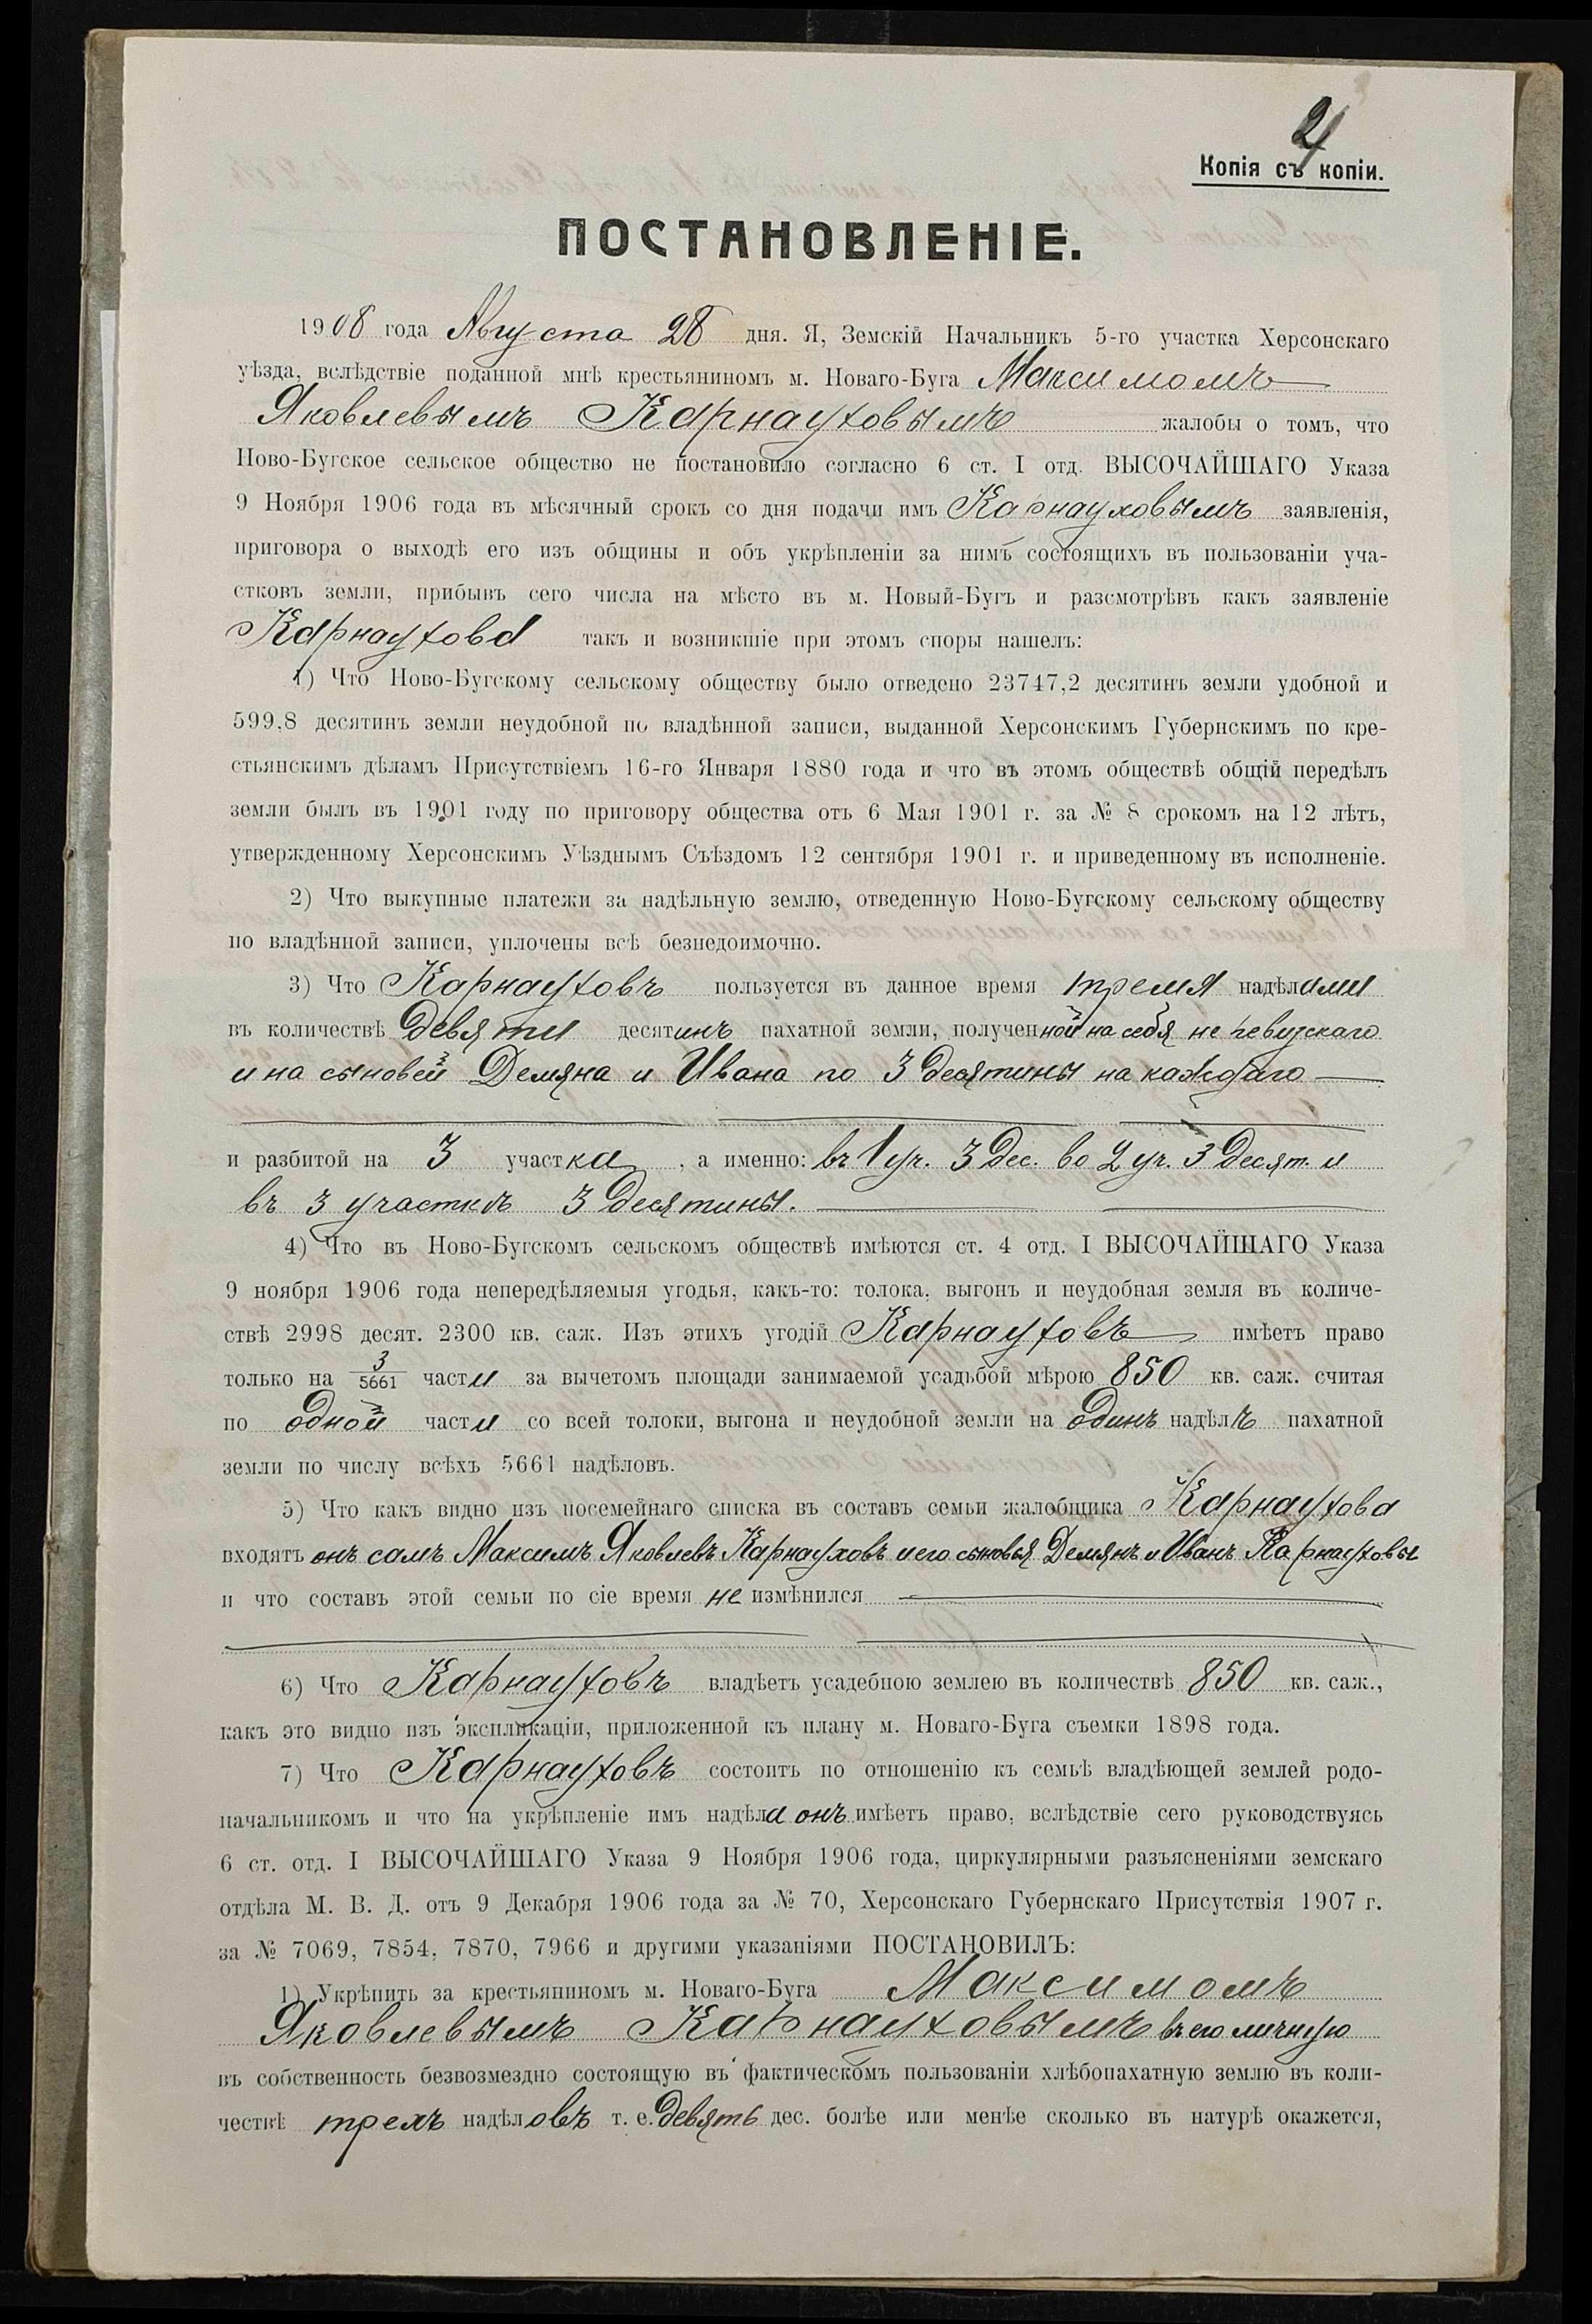 2
Копія съ копіи.
ПОСТАНОВЛЕНІЕ.
1908 года Августа 28 дня. Я, Земскій Начальникъ 5-го участка Херсонскаго
уѣзда, вслѣдствіе поданной мнѣ крестьяниномъ м. Новаго-Буга Максимомъ
Яковлевымъ Карнауховымъ жалобы о томъ, что
Ново-Бугское сельское общество не постановило согласно 6 ст. I отд. ВЫСОЧАЙШАГО Указа
9 Ноября 1906 года въ мѣсячный срокъ со дня подачи имъ Карнауховымъ заявленія,
приговора о выходѣ его изъ общины и объ укрѣпленіи за нимъ состоящихъ въ пользованіи уча-
стковъ земли, прибывъ сего числа на мѣсто въ м. Новый-Бугъ и разсмотрѣвъ какъ заявленіе
Карнаухова такъ и возникшіе при этомъ споры нашелъ:
1) Что Ново-Бугскому сельскому обществу было отведено 23747,2 десятинъ земли удобной и
599,8 десятинъ земли неудобной по владѣнной записи, выданной Херсонскимъ Губернскимъ по кре-
стьянскимъ дѣламъ Присутствіемъ 16-го Января 1880 года и что въ этомъ обществѣ общій передѣлъ
земли былъ въ 1901 году по приговору общества отъ 6 Мая 1901 г. за № 8 срокомъ на 12 лѣтъ,
утвержденному Херсонскимъ Уѣзднымъ Съѣздомъ 12 сентября 1901 г. и приведенному въ исполненіе.
2) Что выкупные платежи за надѣльную землю, отведенную Ново-Бугскому сельскому обществу
по владѣнной записи, уплочены всѣ безнедоимочно.
3) Что Карнауховъ пользуется въ данное время тремя надѣлами
въ количествѣ девяти десятинъ пахатной земли, полученной на себя
и на сыновей Демяна и Ивана по 3 десятины на каждаго
и разбитой на 3 участка, а именно: въ 1 уч. 3 дес. во 2 уч. 3 десят. и
въ 3 участкѣ 3 десятины.
4) Что въ Ново-Бугскомъ сельскомъ обществѣ имѣются ст. 4 отд. I ВЫСОЧАЙШАГО Указа
9 ноября 1906 года непередѣляемыя угодья, какъ-то: толока, выгонъ и неудобная земля въ количе-
ствѣ 2998 десят. 2300 кв. саж. Изъ этихъ угодій Карнауховъ имѣетъ право
только на 3/5661 части за вычетомъ площади занимаемой усадьбой мѣрою 850 кв. саж. считая
по одной части со всей толоки, выгона и неудобной земли на одинъ надѣлъ пахатной
земли по числу всѣхъ 5661 надѣловъ.
5) Что какъ видно изъ посемейнаго списка въ составъ семьи жалобщика Карнаухова
входятъ онъ самъ Максимъ Яковлевъ Карнауховъ и его сыновья Демянъ и Иванъ Карнауховы
и что составъ этой семьи по сіе время не измѣнился
6) Что Карнауховъ владѣетъ усадебною землею въ количествѣ 850 кв. саж.,
какъ это видно изъ экспликаціи, приложенной къ плану м. Новаго-Буга съемки 1898 года.
7) Что Карнауховъ состоитъ по отношенію къ семьѣ владѣющей землей родо-
начальникомъ и что на укрѣпленіе имъ надѣла онъ имѣетъ право, вслѣдствіе сего руководствуясь
6 ст. отд. I ВЫСОЧАЙШАГО Указа 9 Ноября 1906 года, циркулярными разъясненіями земскаго
отдѣла М. В. Д. отъ 9 Декабря 1906 года за № 70, Херсонскаго Губернскаго Присутствія 1907 г.
за № 7069, 7854, 7870, 7966 и другими указаніями ПОСТАНОВИЛЪ:
1) Укрѣпить за крестьяниномъ м. Новаго-Буга Максимомъ
Яковлевымъ Карнауховымъ въ его личную
въ собственность безвозмездно состоящую въ фактическомъ пользованіи хлѣбопахатную землю въ коли-
чествѣ трехъ надѣловъ т. е. девять дес. болѣе или менѣе сколько въ натурѣ окажется,